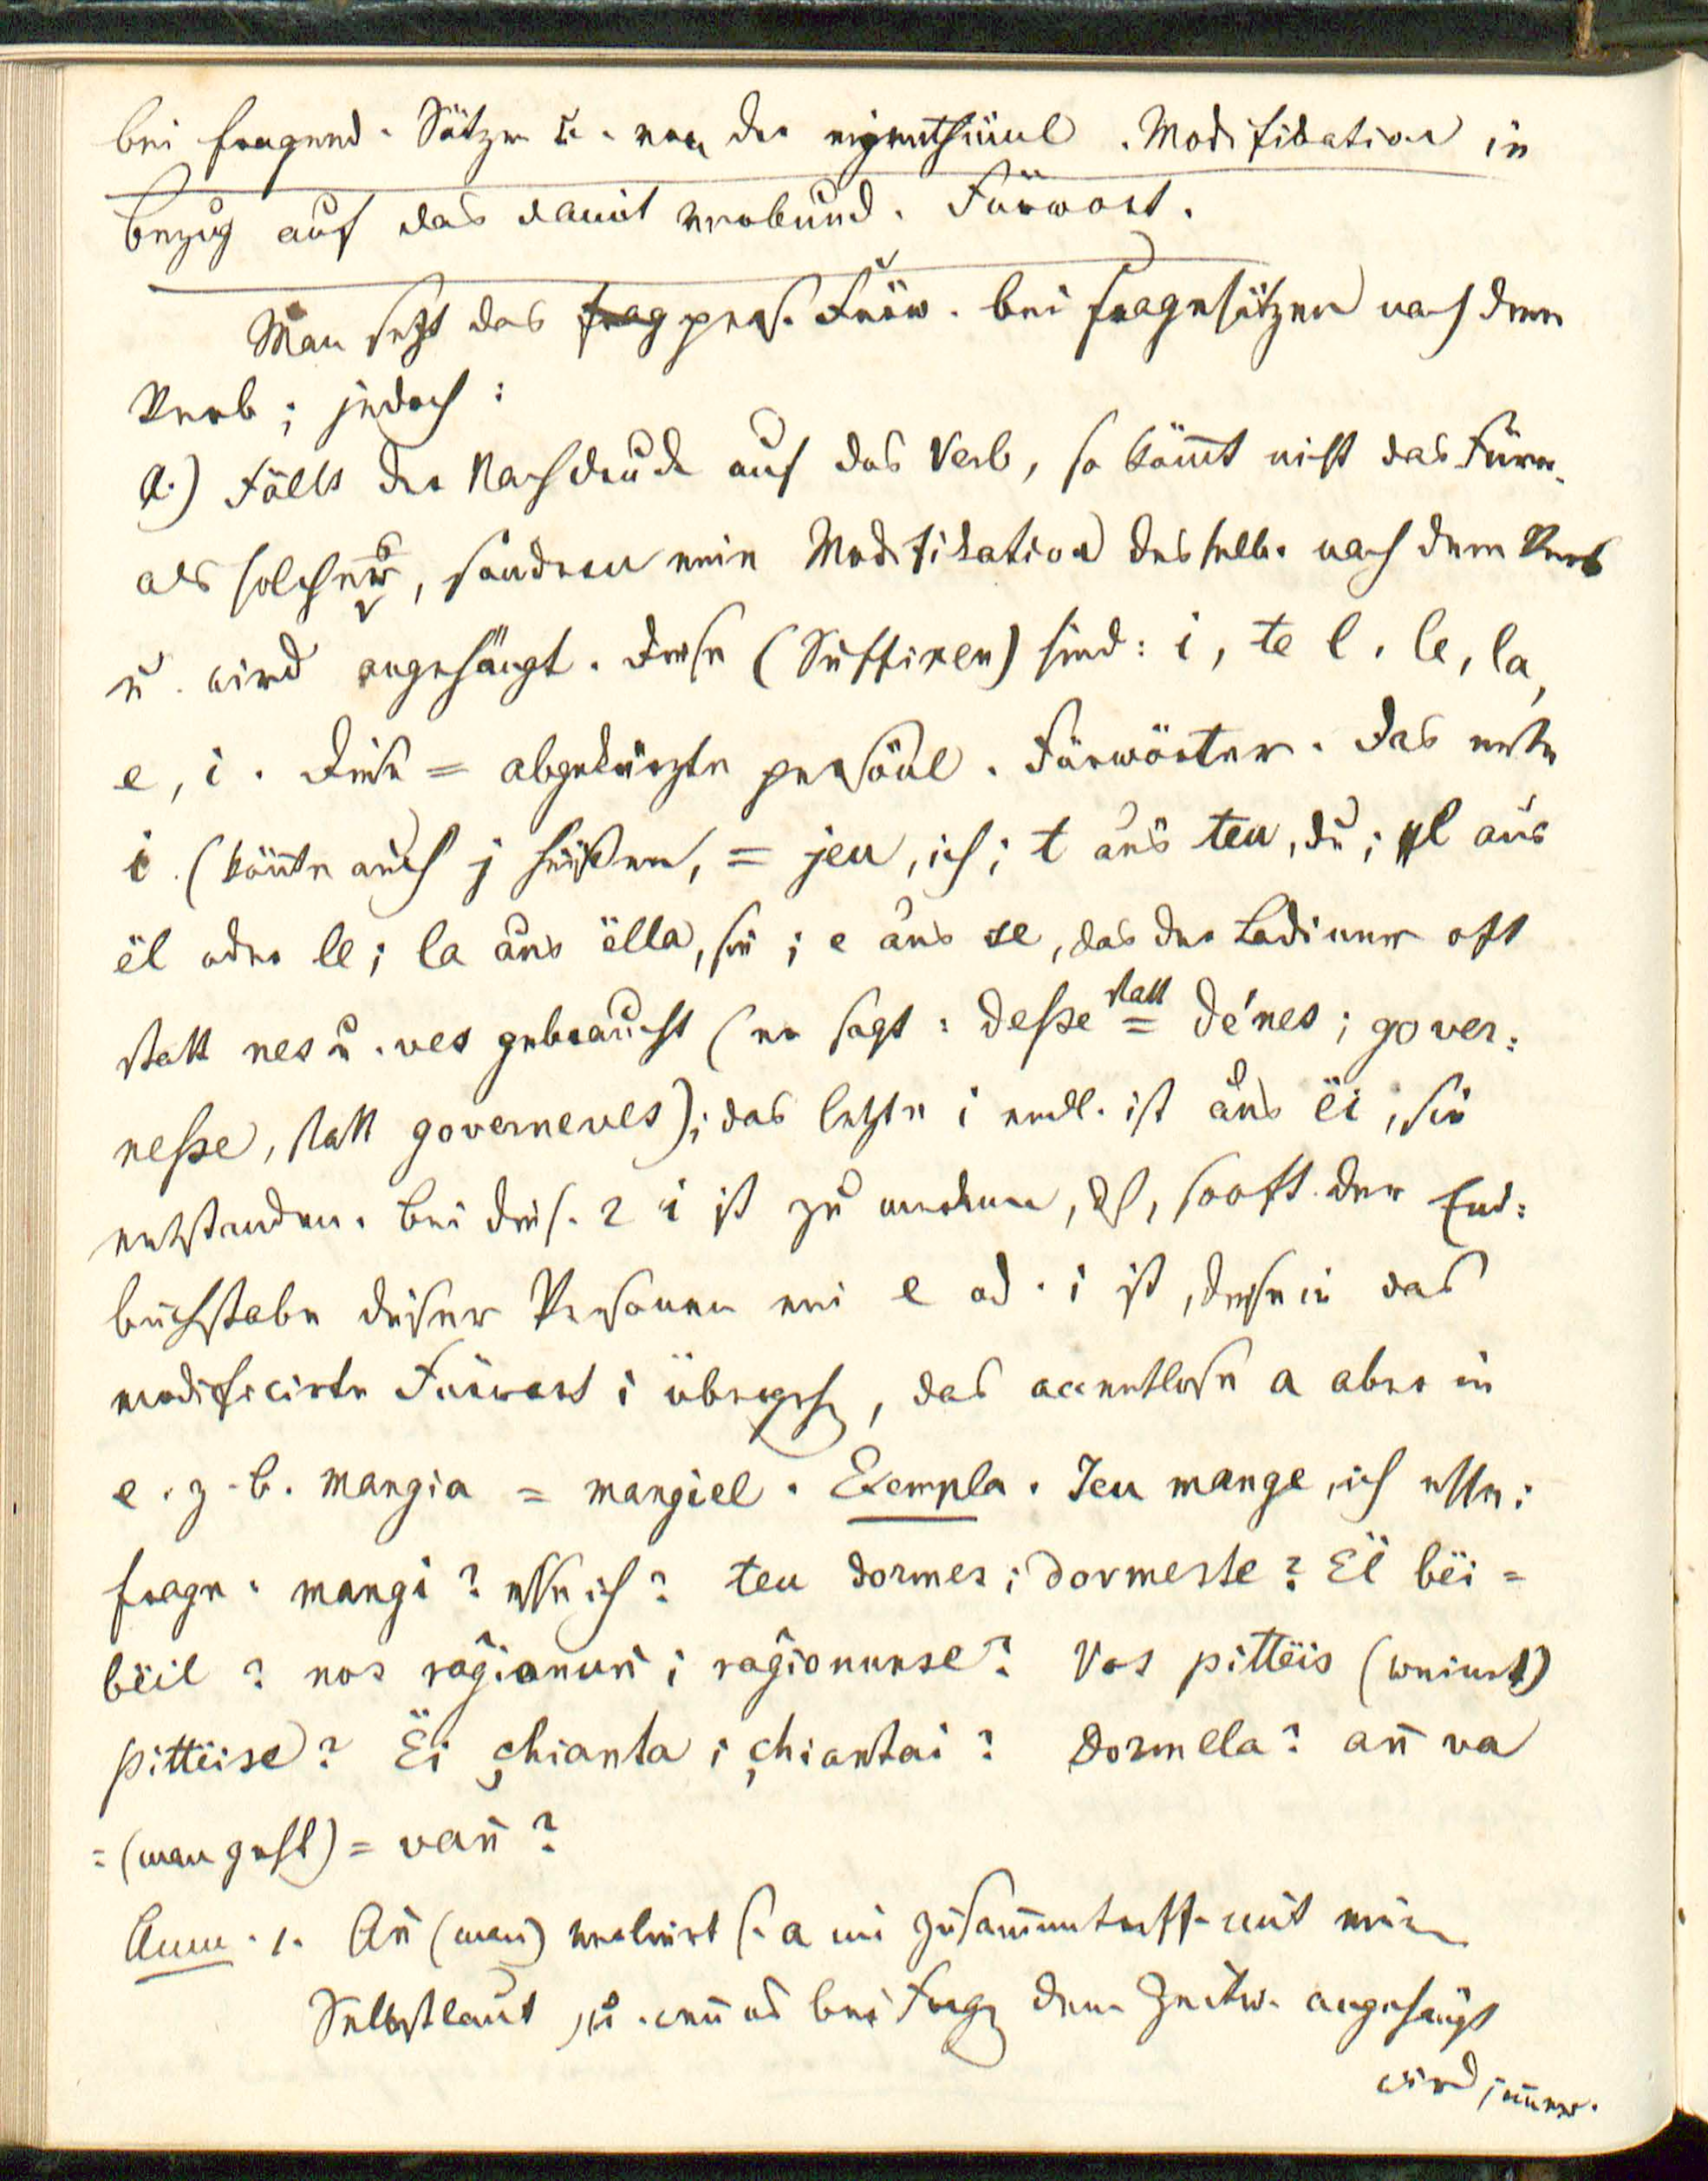 bei fragend. Sätzen u. von der eigenthüml. Modifikation in
Bezug auf das damit verbund. Fürwort.
Man setzt das frag pers. Fürw. bei Fragesätzen nach dem
Verb; jedoch:
a.) Fällt der Nachdruck auf das Verb, so kömt nicht das Fürw.
als solches, sondern eine Modifikation desselb. nach dem Verb
u. wird angehängt. Diese (Suffixen) sind: i, te l, le, la,
e, i. Diese = abgekürzte persönl. Fürwörter. Das erste
i (könte auch j heißen, = jeu, ich; t aus teu, du; l aus
ël oder le; la aus ëlla, sie; e aus se, das der Ladiner oft
statt nes u. ves gebraucht (er sagt: deße statt = dénes; gover:
neße, statt governeves); das letzte i endl. ist aus ëi, sie
entstanden. Bei dies. 2 i ist zu merken, dß, sooft der End:
buchstabe dieser Personen ein e od. i ist, diese in das
modificirte Fürwort i übergeh, das accentlose a aber in
e. z. b. mangia = mangiel. Exempla. Jeu mange, ich esse:
Frage: mangi? esse ich? teu dormes; dormeste? Ël bëi =
bëil? nos ragionun; ragionunse? Vos pittëis (weinet)
pittëise? Ëi chianta; chiantai? Dormela? an̄ va
= (man geht) = van̄?
Anm. 1. An̄ (man) verliert s. a im Zusam̄entreff. mit einem
Selbstlaut, u. wen̄ es bei Frag dem Zeitw. angehängt
wird im̄er.